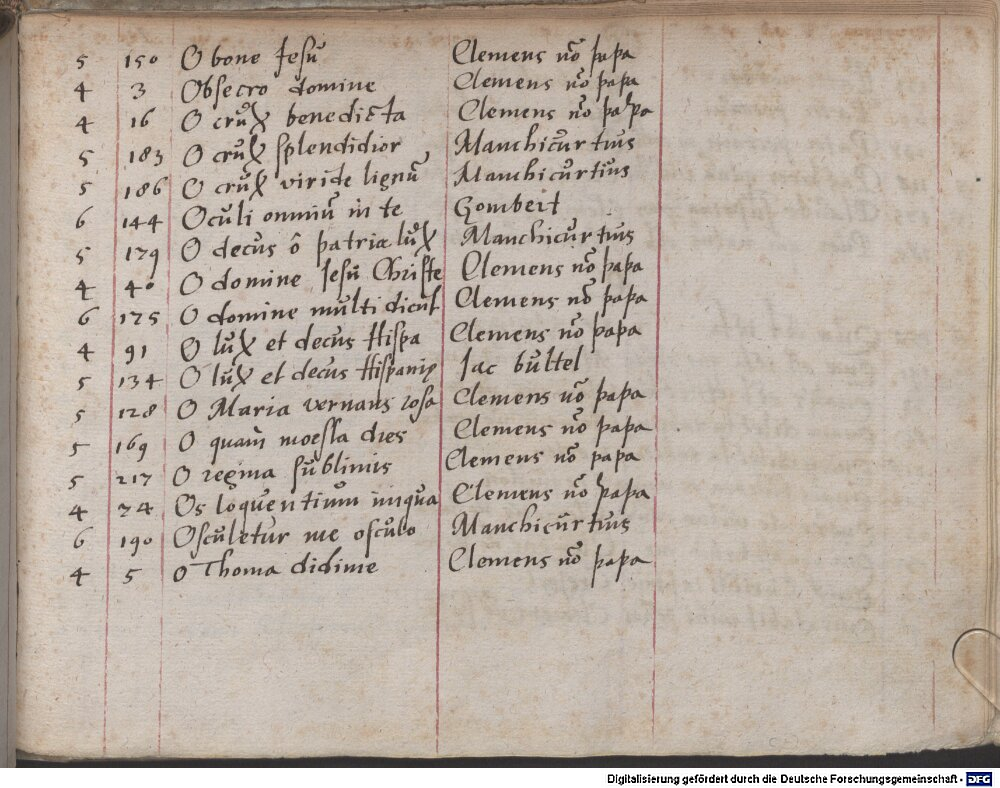 5 150 O bone Jesū Clemens nō papa
4 3 Obsecro domine Clemens nō papa
4 16 O crux benedicta Clemens nō papa
5 183 O crux splendidior Manchicurtius
5 186 O crux viride lignū Manchicurtius
6 144 Oculi omniū in te Gombert
5 179 O decus ô patriæ lux Manchicurtius
4 40 O domine Jesu Christe Clemens nō papa
6 175 O domine multi dicūt Clemens nō papa
4 91 O lux et decus Hispa Clemens nō papa
5 134 O lux et decus Hispanię Jac bultel
5 128 O Maria vernans rosa Clemens nō papa
5 169 O quam moesta dies Clemens nō papa
5 217 O regina sublimis Clemens nō papa
4 74 Os loquentium iniqua Clemens nō papa
6 190 Osculetur me osculo Manchicurtius
4 5 O Thoma didime Clemens nō papa
Digitalisierung gefördert durch die Deutsche Forschungsgemeinschaft - DFG